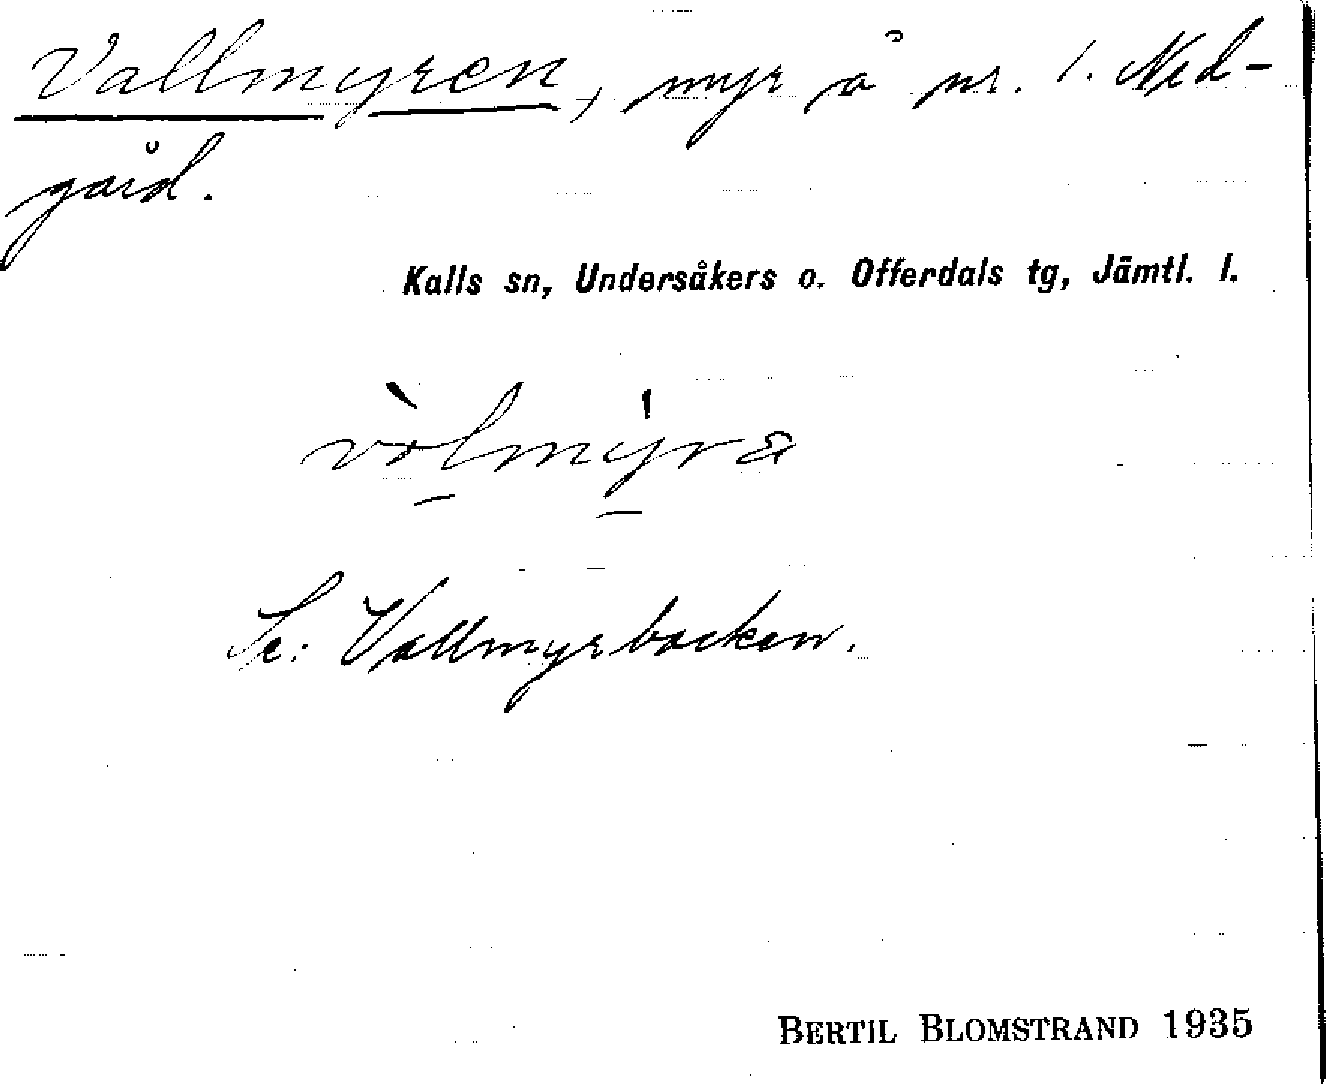 Vallmyren, myr å nr. 1. Ned-
gård.
Kalls sn, Undersåkers o. Offerdals tg, Jämtl. l.
vòlmýra
Se: Vallmyrbacken.
BERTIL BLOMSTRAND 1935